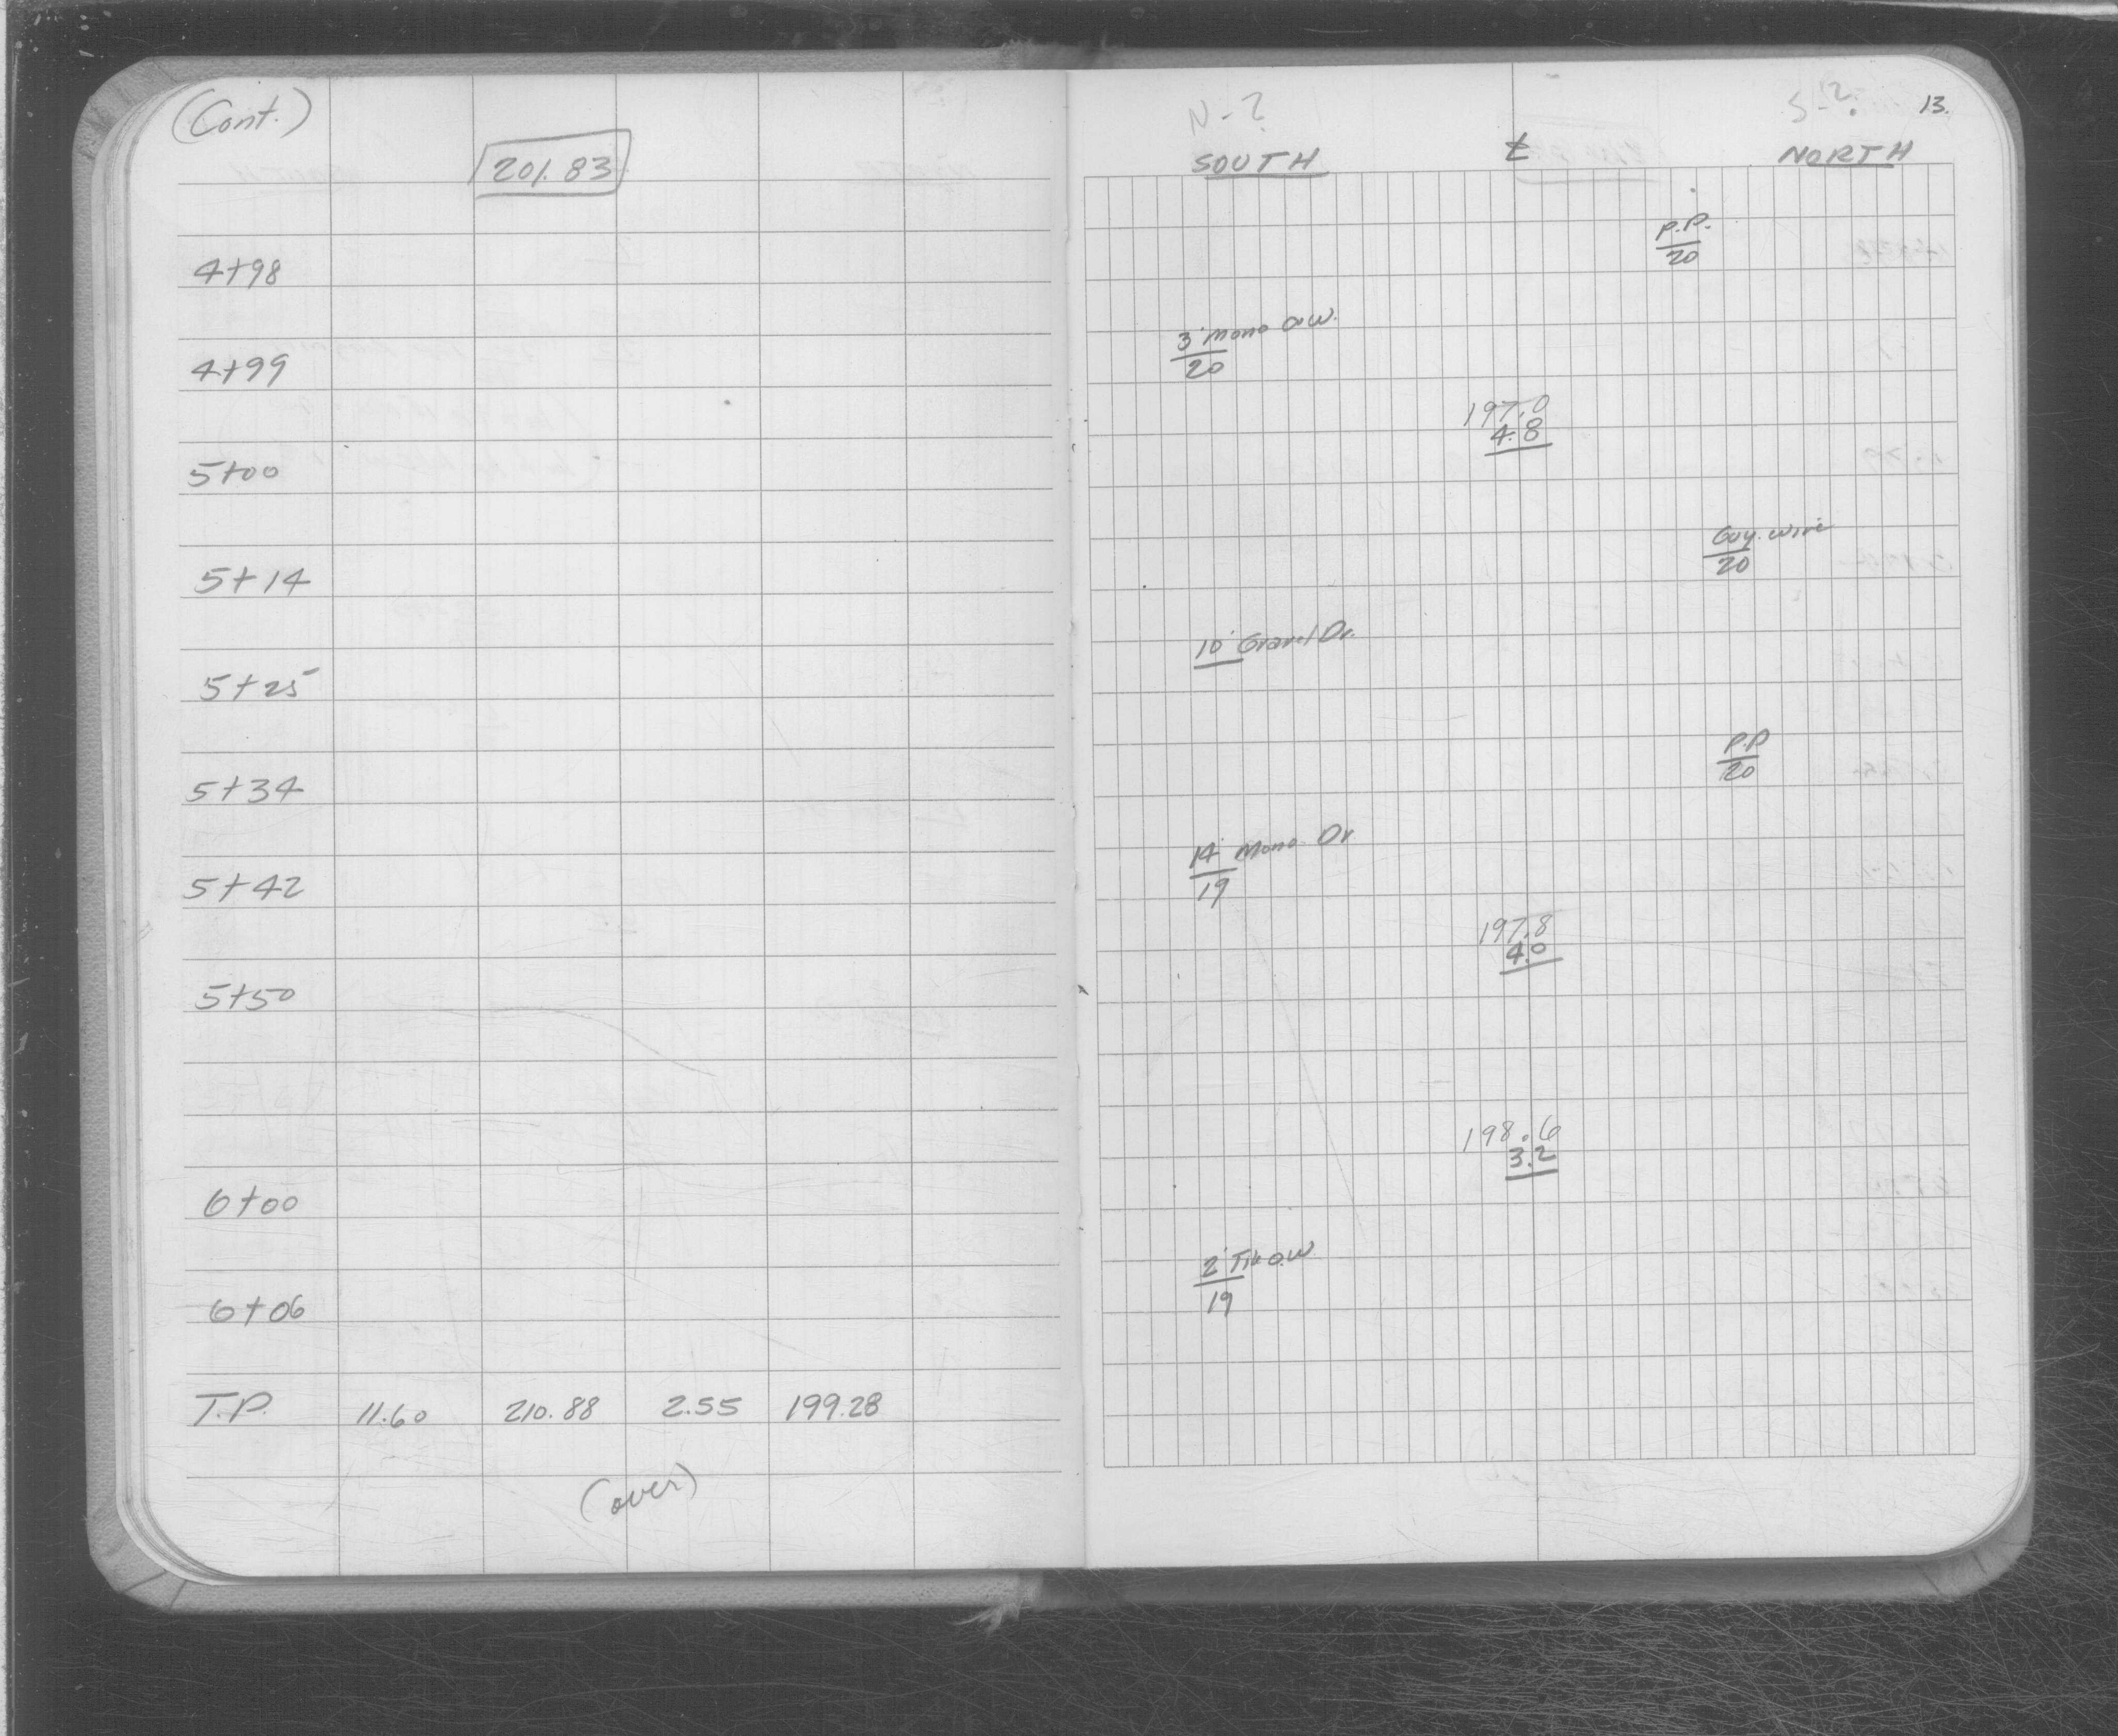 (Cont.)
201.83
4+98
4+99
5+00
5+14
5+25
5+34
5+42
5+50
6+00
6+06
T.P. 11.60 210.88 2.55 199.28
(over)
N-? S-? 13.
SOUTH ℄ NORTH
P.P.
20
3' Mono O.W.
20
197.0
4.8
Guy. wire
20
10' Gravel Dr.
P.P
20
14' Mono. Dr
19
197.8
4.0
198.6
3.2
2'
19